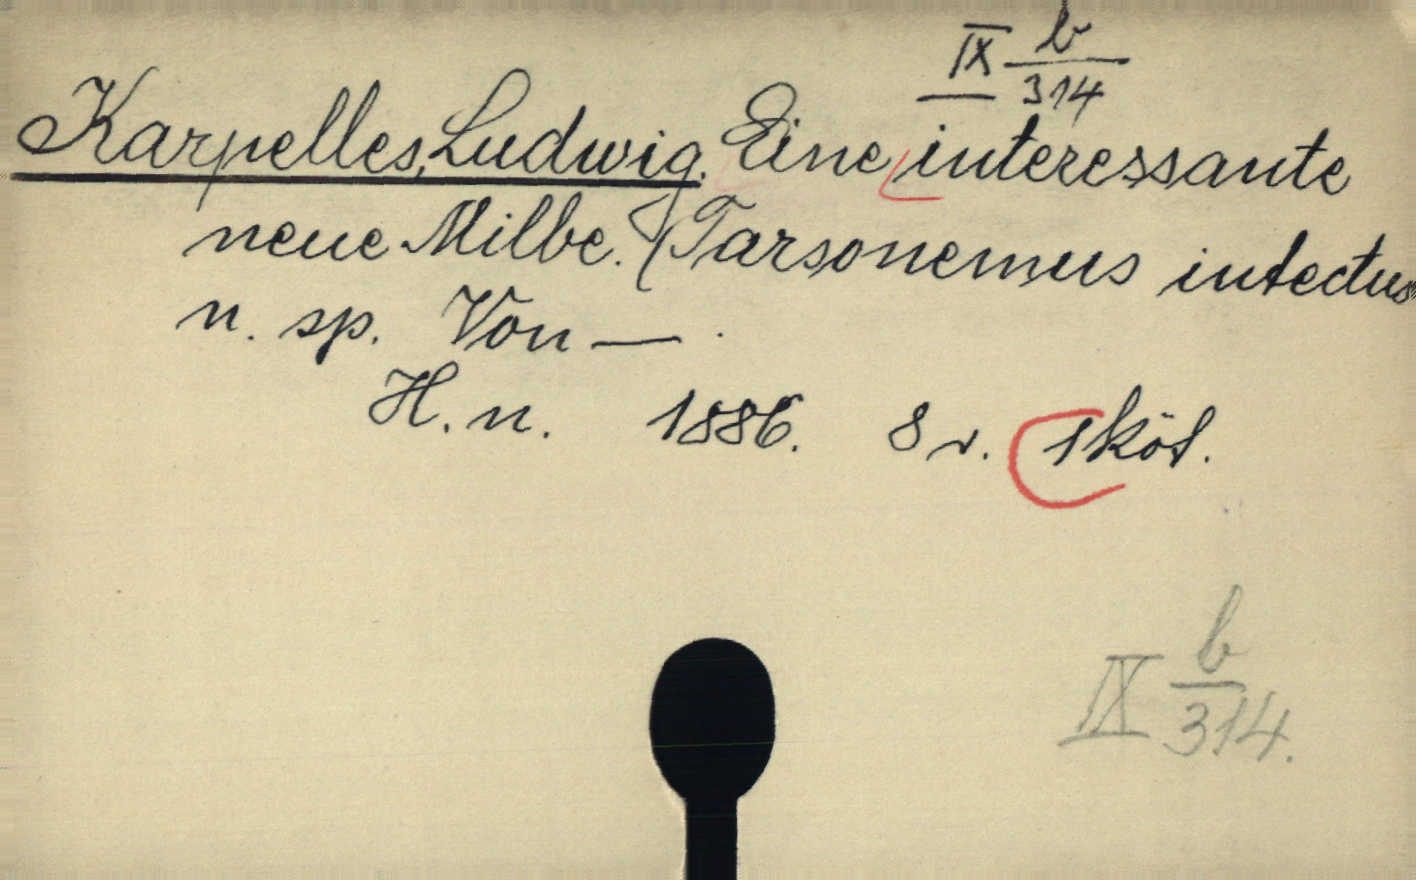 IX b/314
Karpelles, Ludwig. Eine interessante
neue Milbe. (Tarsonemus intectus
n. sp. Von — .
H. n. 1886. 8 r. 1 köt.
IX b/314.